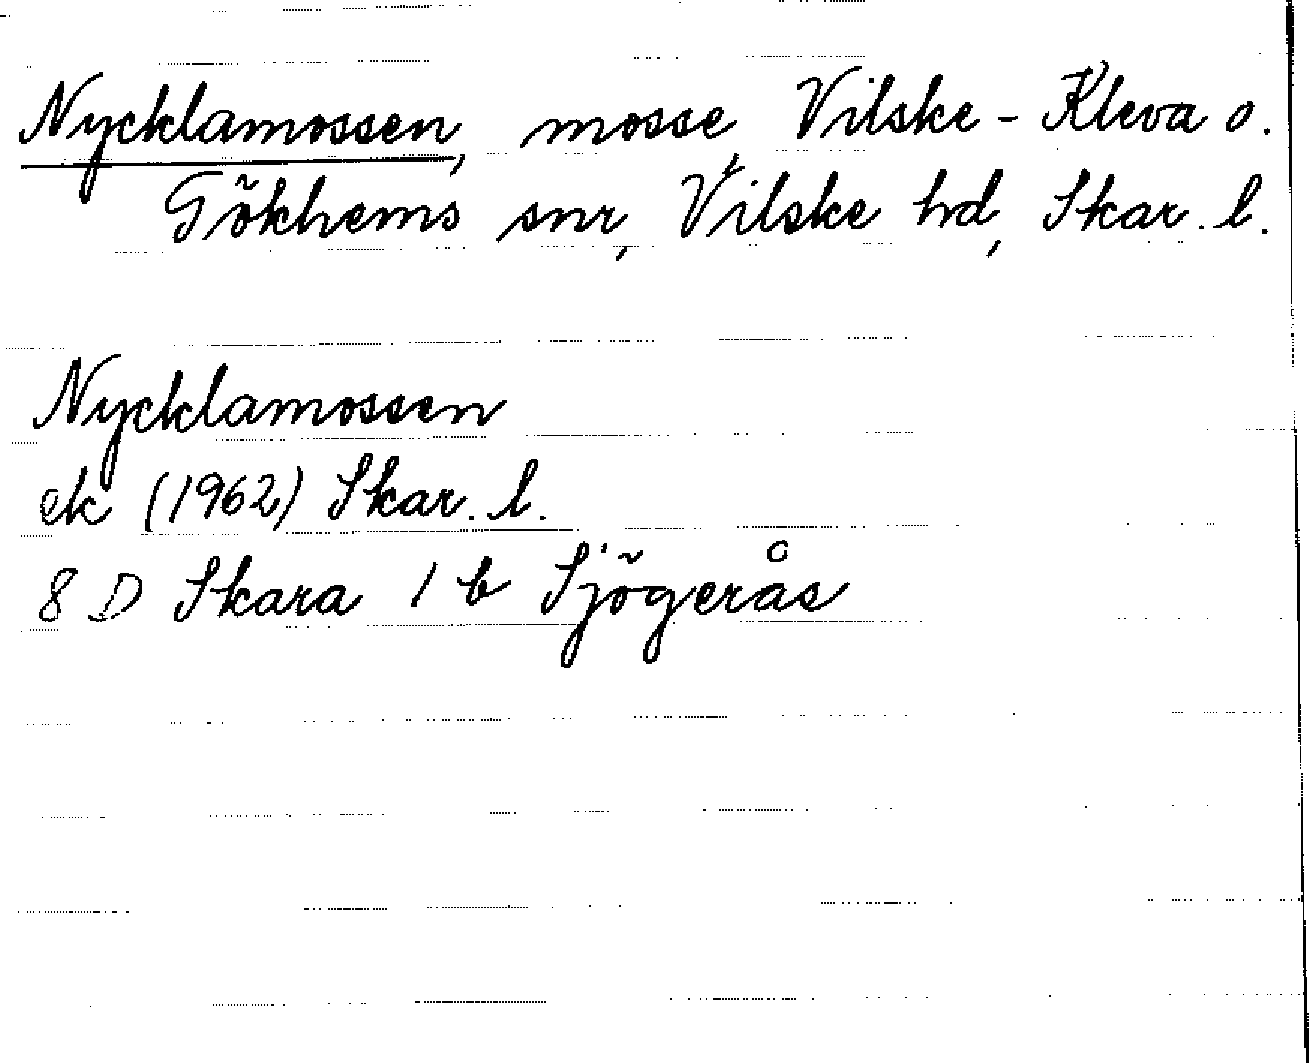 Nycklamossen, mosse, Vilske-Kleva o.
Gökhems snr, Vilske hd, Skar. l.
Nycklamossen
ek (1962) Skar. l.
8 D Skara 1 b Sjögerås